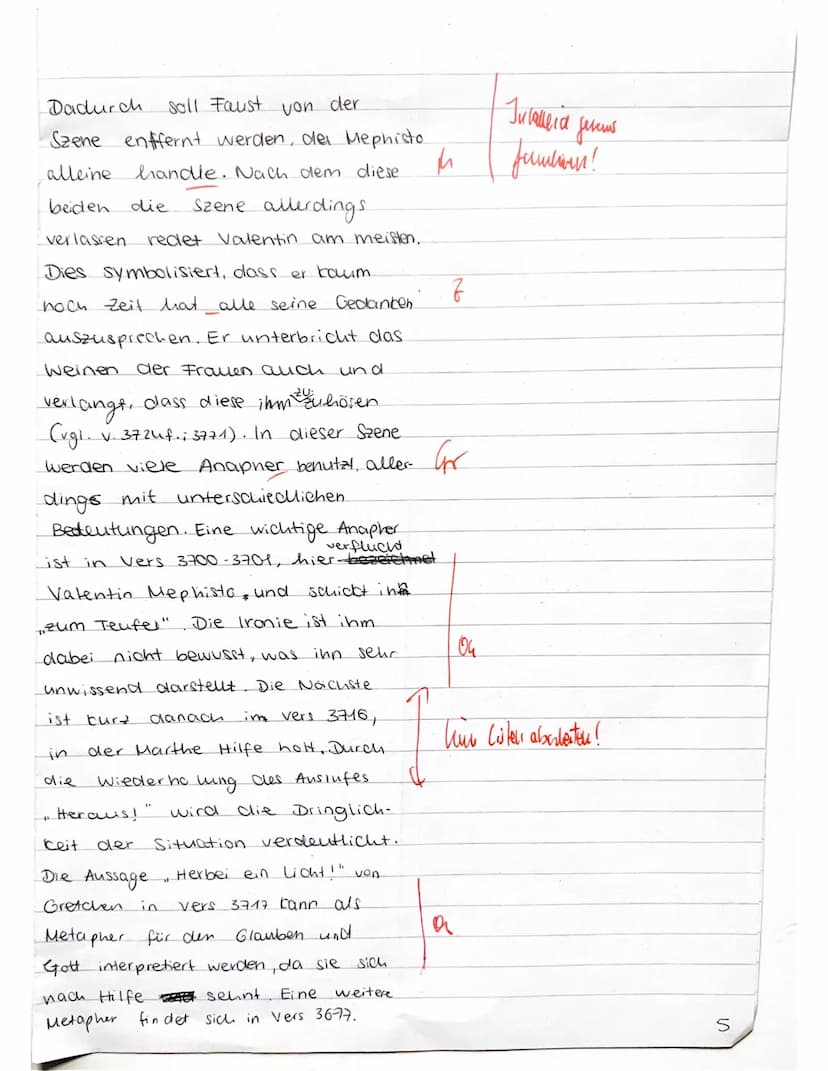 Dadurch soll Faust von der
Szene entfernt werden, der Mephisto
alleine handle. Nach dem diese
beiden die Szene allerdings
verlassen redet Valentin am meisten.
Dies symbolisiert, dass er kaum
noch Zeit hat alle seine Gedanken
auszusprechen. Er unterbricht das
Weinen der Frauen auch und
verlangt, dass diese ihm zuhören
(vgl. v. 3724f.; 3771). In dieser Szene
werden viele Anapher benutzt, aller-
dings mit unterschiedlichen
Bedeutungen. Eine wichtige Anapher
ist in Vers 3700-3701, hier verflucht
Valentin Mephisto, und schickt ihn
„zum Teufel". Die Ironie ist ihm
dabei nicht bewusst, was ihn sehr
unwissend darstellt. Die Nächste
ist kurz danach im Vers 3716,
in der Marthe Hilfe holt. Durch
die Wiederholung des Ausrufes
„Heraus!" wird die Dringlich-
keit der Situation verdeutlicht.
Die Aussage „Herbei ein Licht!" von
Gretchen in Vers 3717 kann als
Metapher für den Glauben und
Gott interpretiert werden, da sie sich
nach Hilfe sehnt. Eine weitere
Metapher findet sich in Vers 3677.
5
Gr